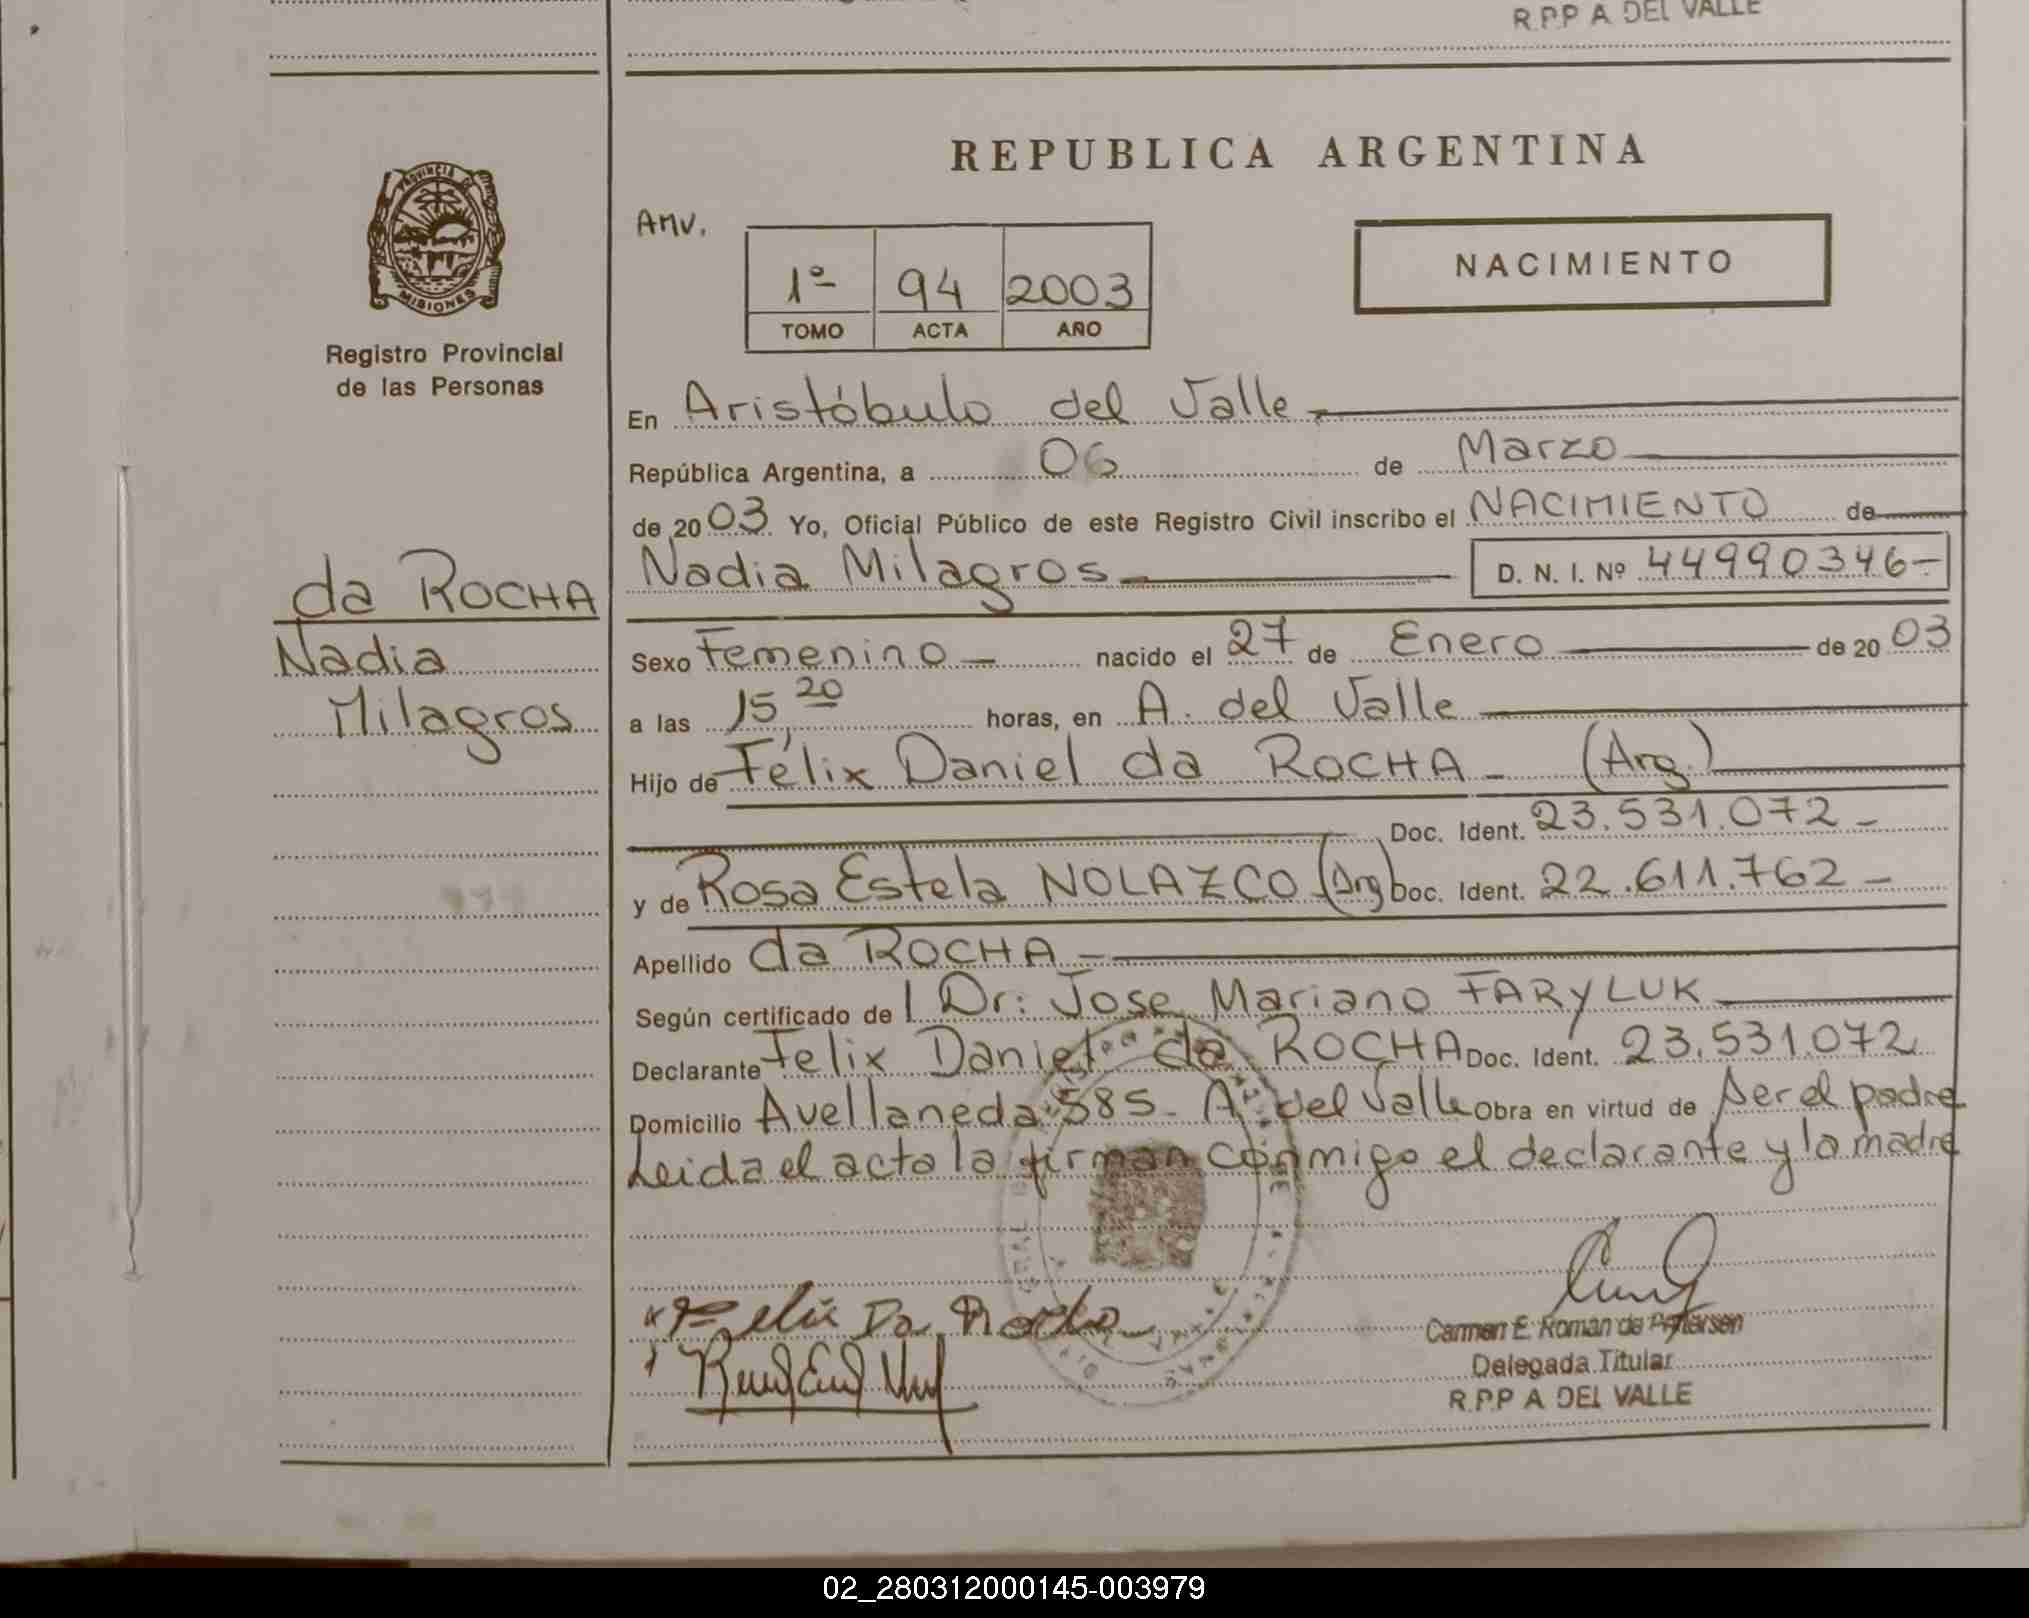 R.P.P A DEL VALLE
REPUBLICA ARGENTINA
PROVINCIA DE
MISIONES
Registro Provincial
de las Personas
AMV.
1º 94 2003
TOMO ACTA AÑO
NACIMIENTO
En Aristóbulo del Valle
República Argentina, a 06 de Marzo
de 2003 Yo, Oficial Público de este Registro Civil inscribo el NACIMIENTO de
da ROCHA
Nadia
Milagros
Nadia Milagros D. N. I. Nº 44990346-
Sexo Femenino - nacido el 27 de Enero de 2003
a las 15 20 horas, en A. del Valle
Hijo de Félix Daniel da ROCHA - (Arg.)
Doc. Ident. 23.531.072-
y de Rosa Estela NOLAZCO (Arg) Doc. Ident. 22.611.762-
Apellido da ROCHA -
Según certificado de Dr: Jose Mariano FARYLUK
Declarante Felix Daniel da ROCHA Doc. Ident. 23.531.072
Domicilio Avellaneda 585- A. del Valle Obra en virtud de ser el padre
Leida el acta la firman conmigo el declarante y la madre
Felix Da Rocha
Carmen E. Roman de Petersen
Delegada Titular
R.P.P A DEL VALLE
02_280312000145-003979